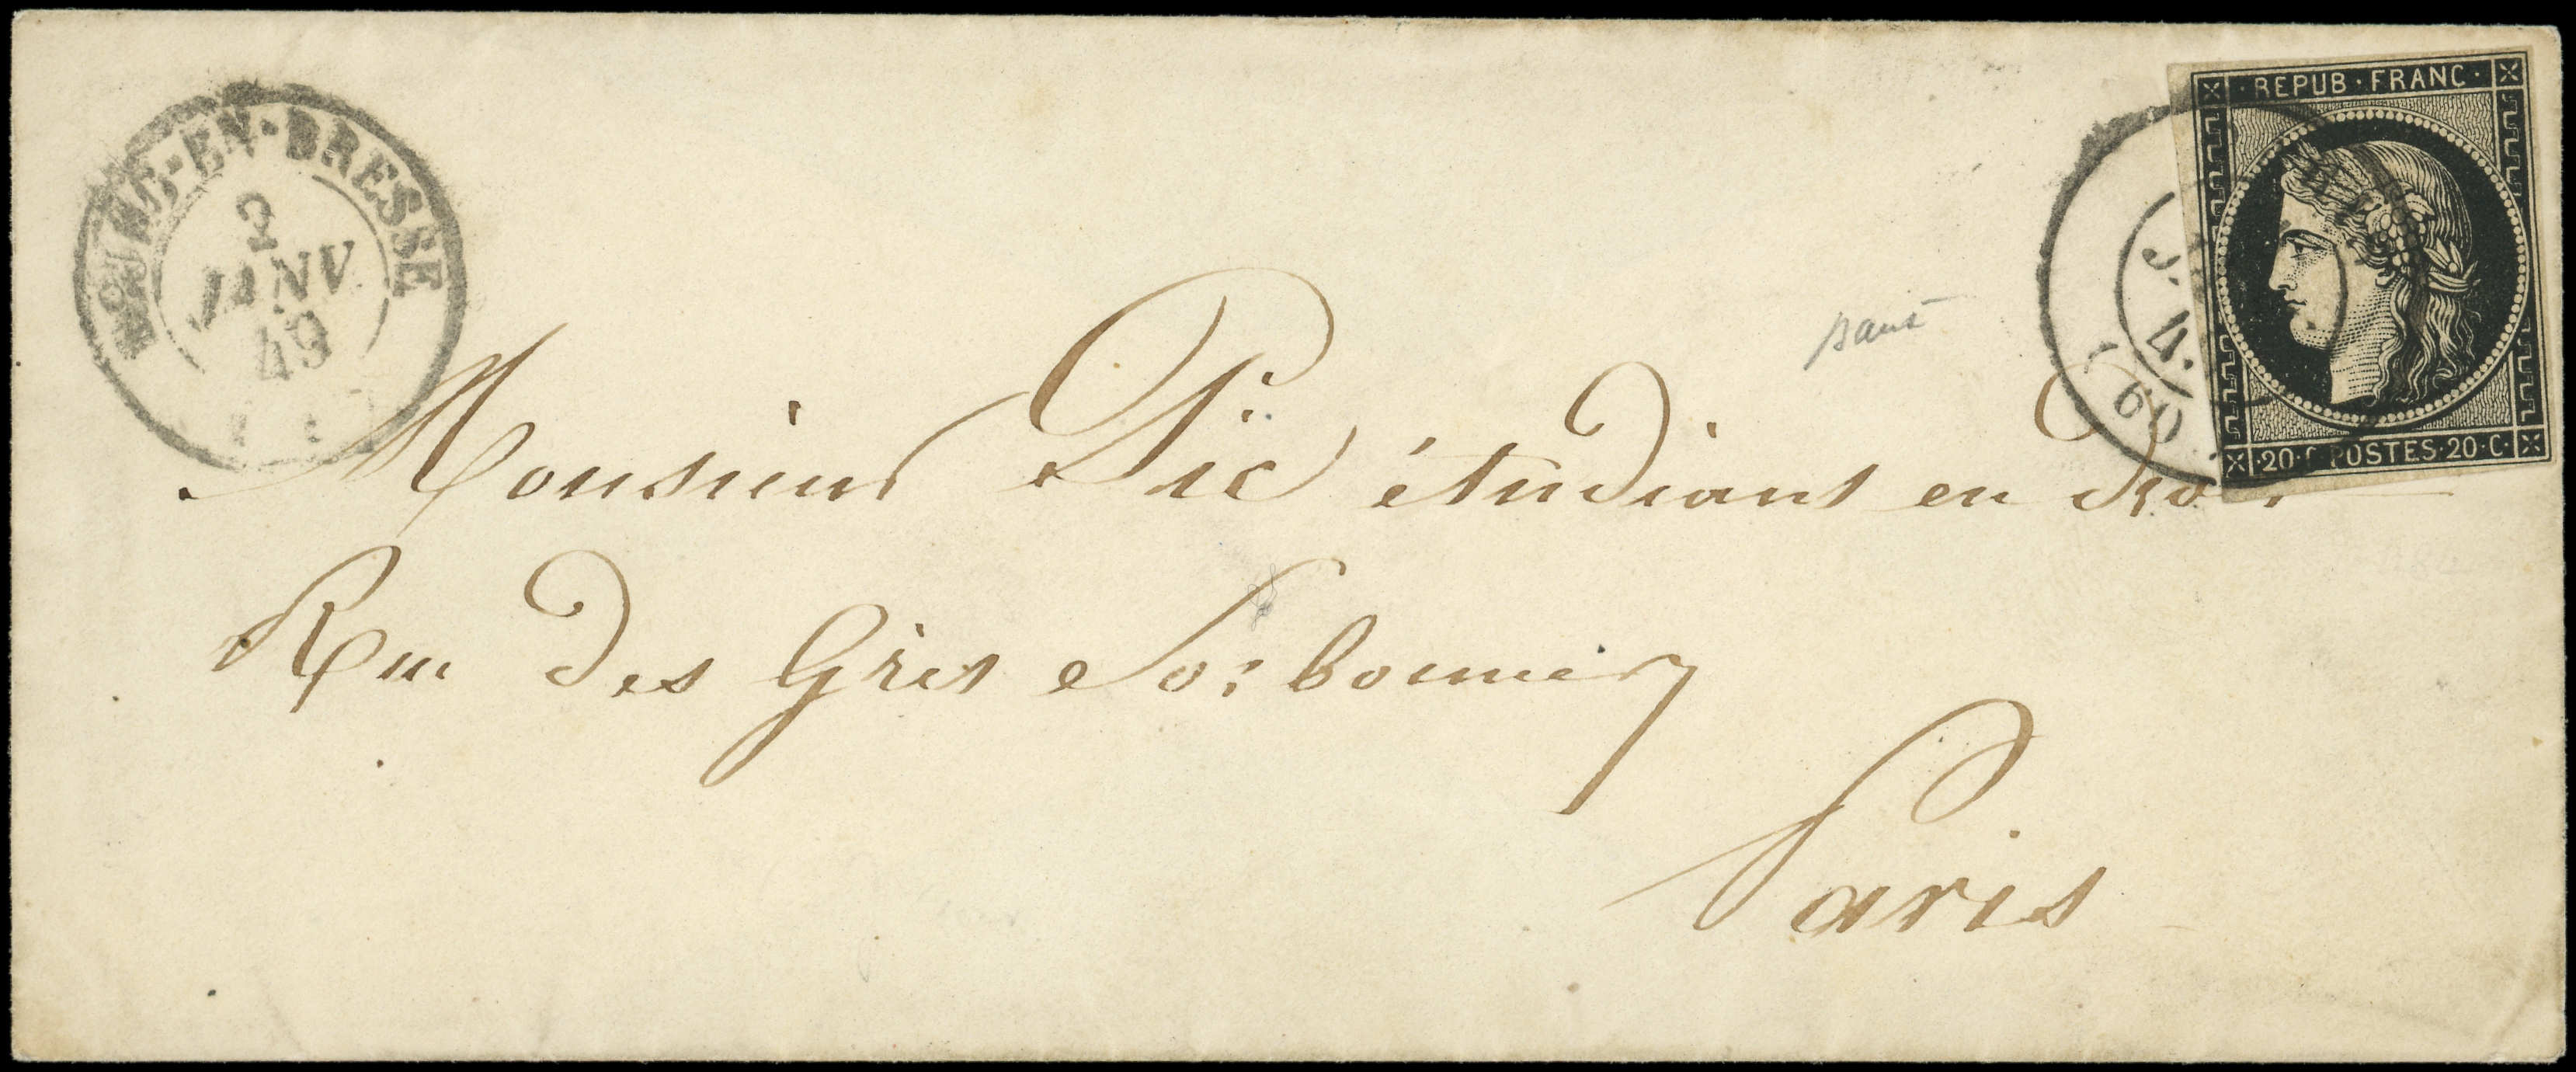 BOURG-EN-BRESSE
2
JANV
49
REPUB · FRANC ·
J. 4.
(60
· 20 · C POSTES · 20 · C ·
Monsieur Pic étudiant en droit
Rue des Grès Sorbonne
Paris